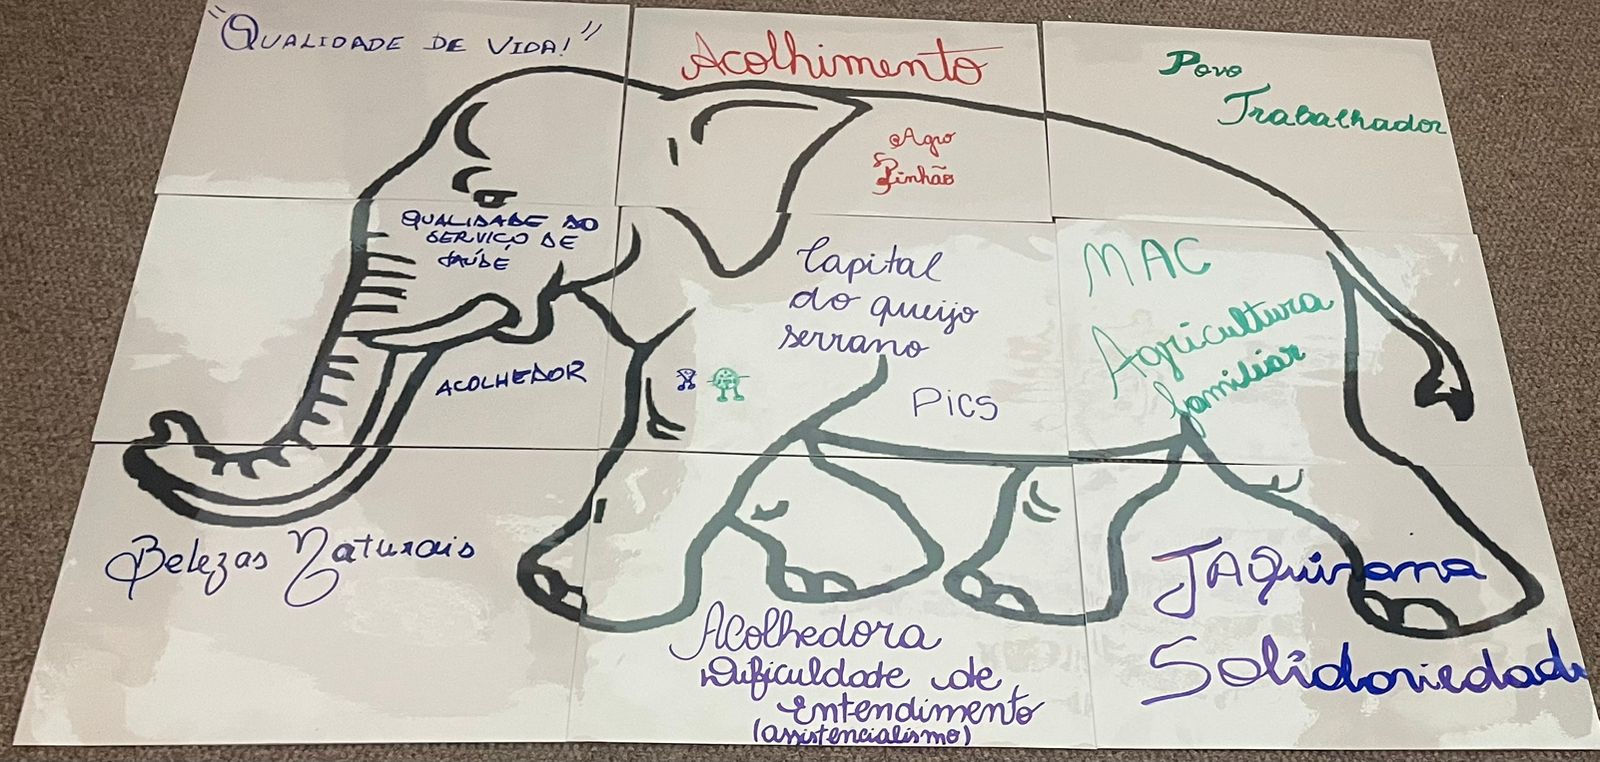 "QUALIDADE DE VIDA!"
Acolhimento
Agro
Pinhão
Povo
Trabalhador
QUALIDADE DO
SERVIÇO DE
SAÚDE
ACOLHEDOR
Capital
do queijo
serrano
PICS
MAC
Agricultura
familiar
Belezas Naturais
Acolhedora
Dificuldade de
Entendimento
(assistencialismo)
JAQuirana
Solidariedade